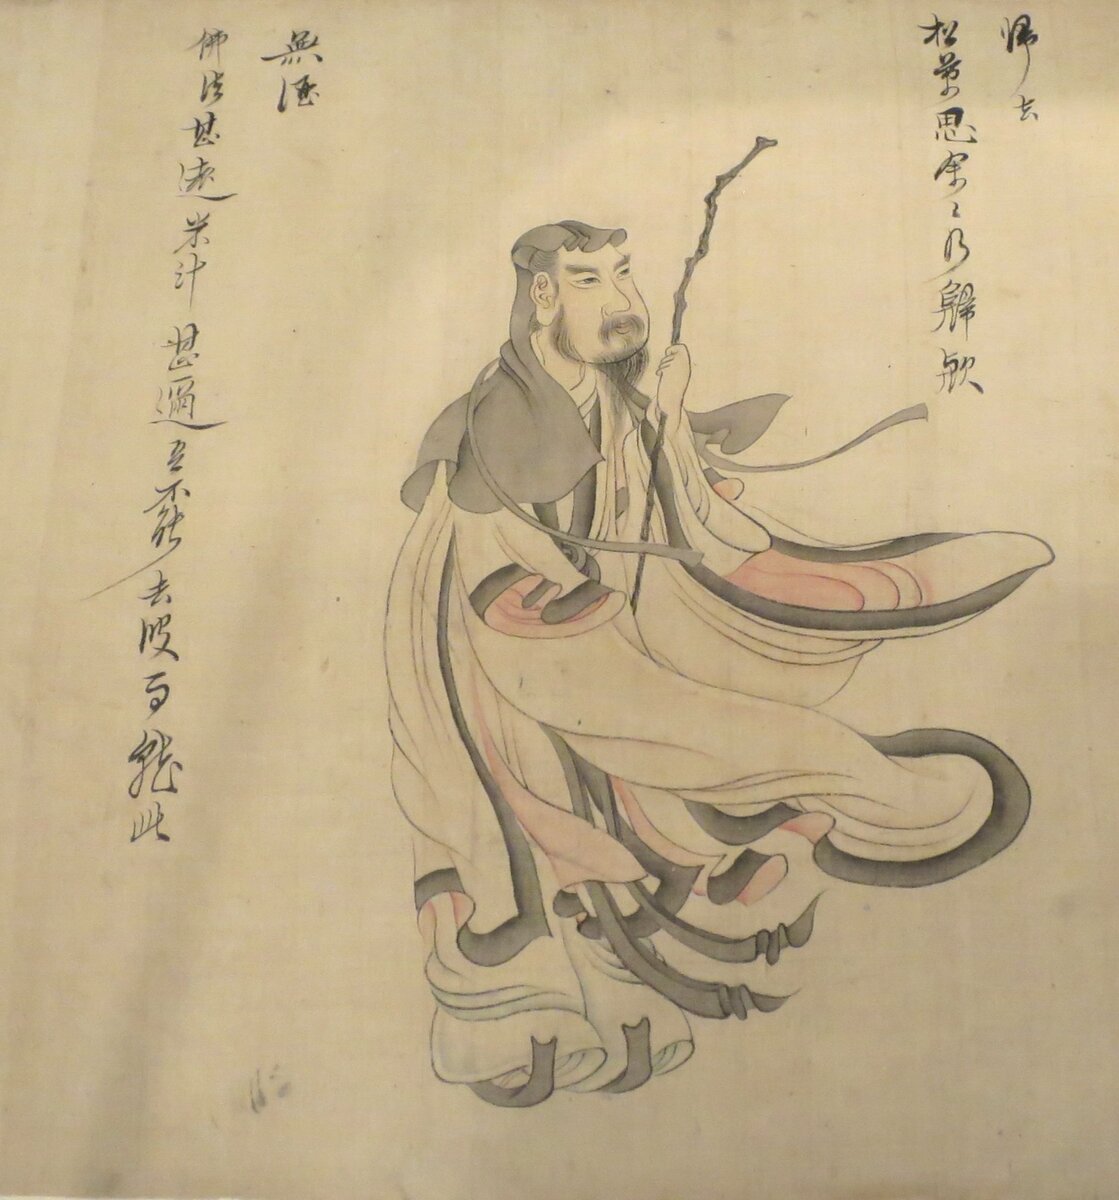 歸去
松菊思余〻乃歸歟
無酒
佛法甚遠米汁甚邇吾不能去彼而就此